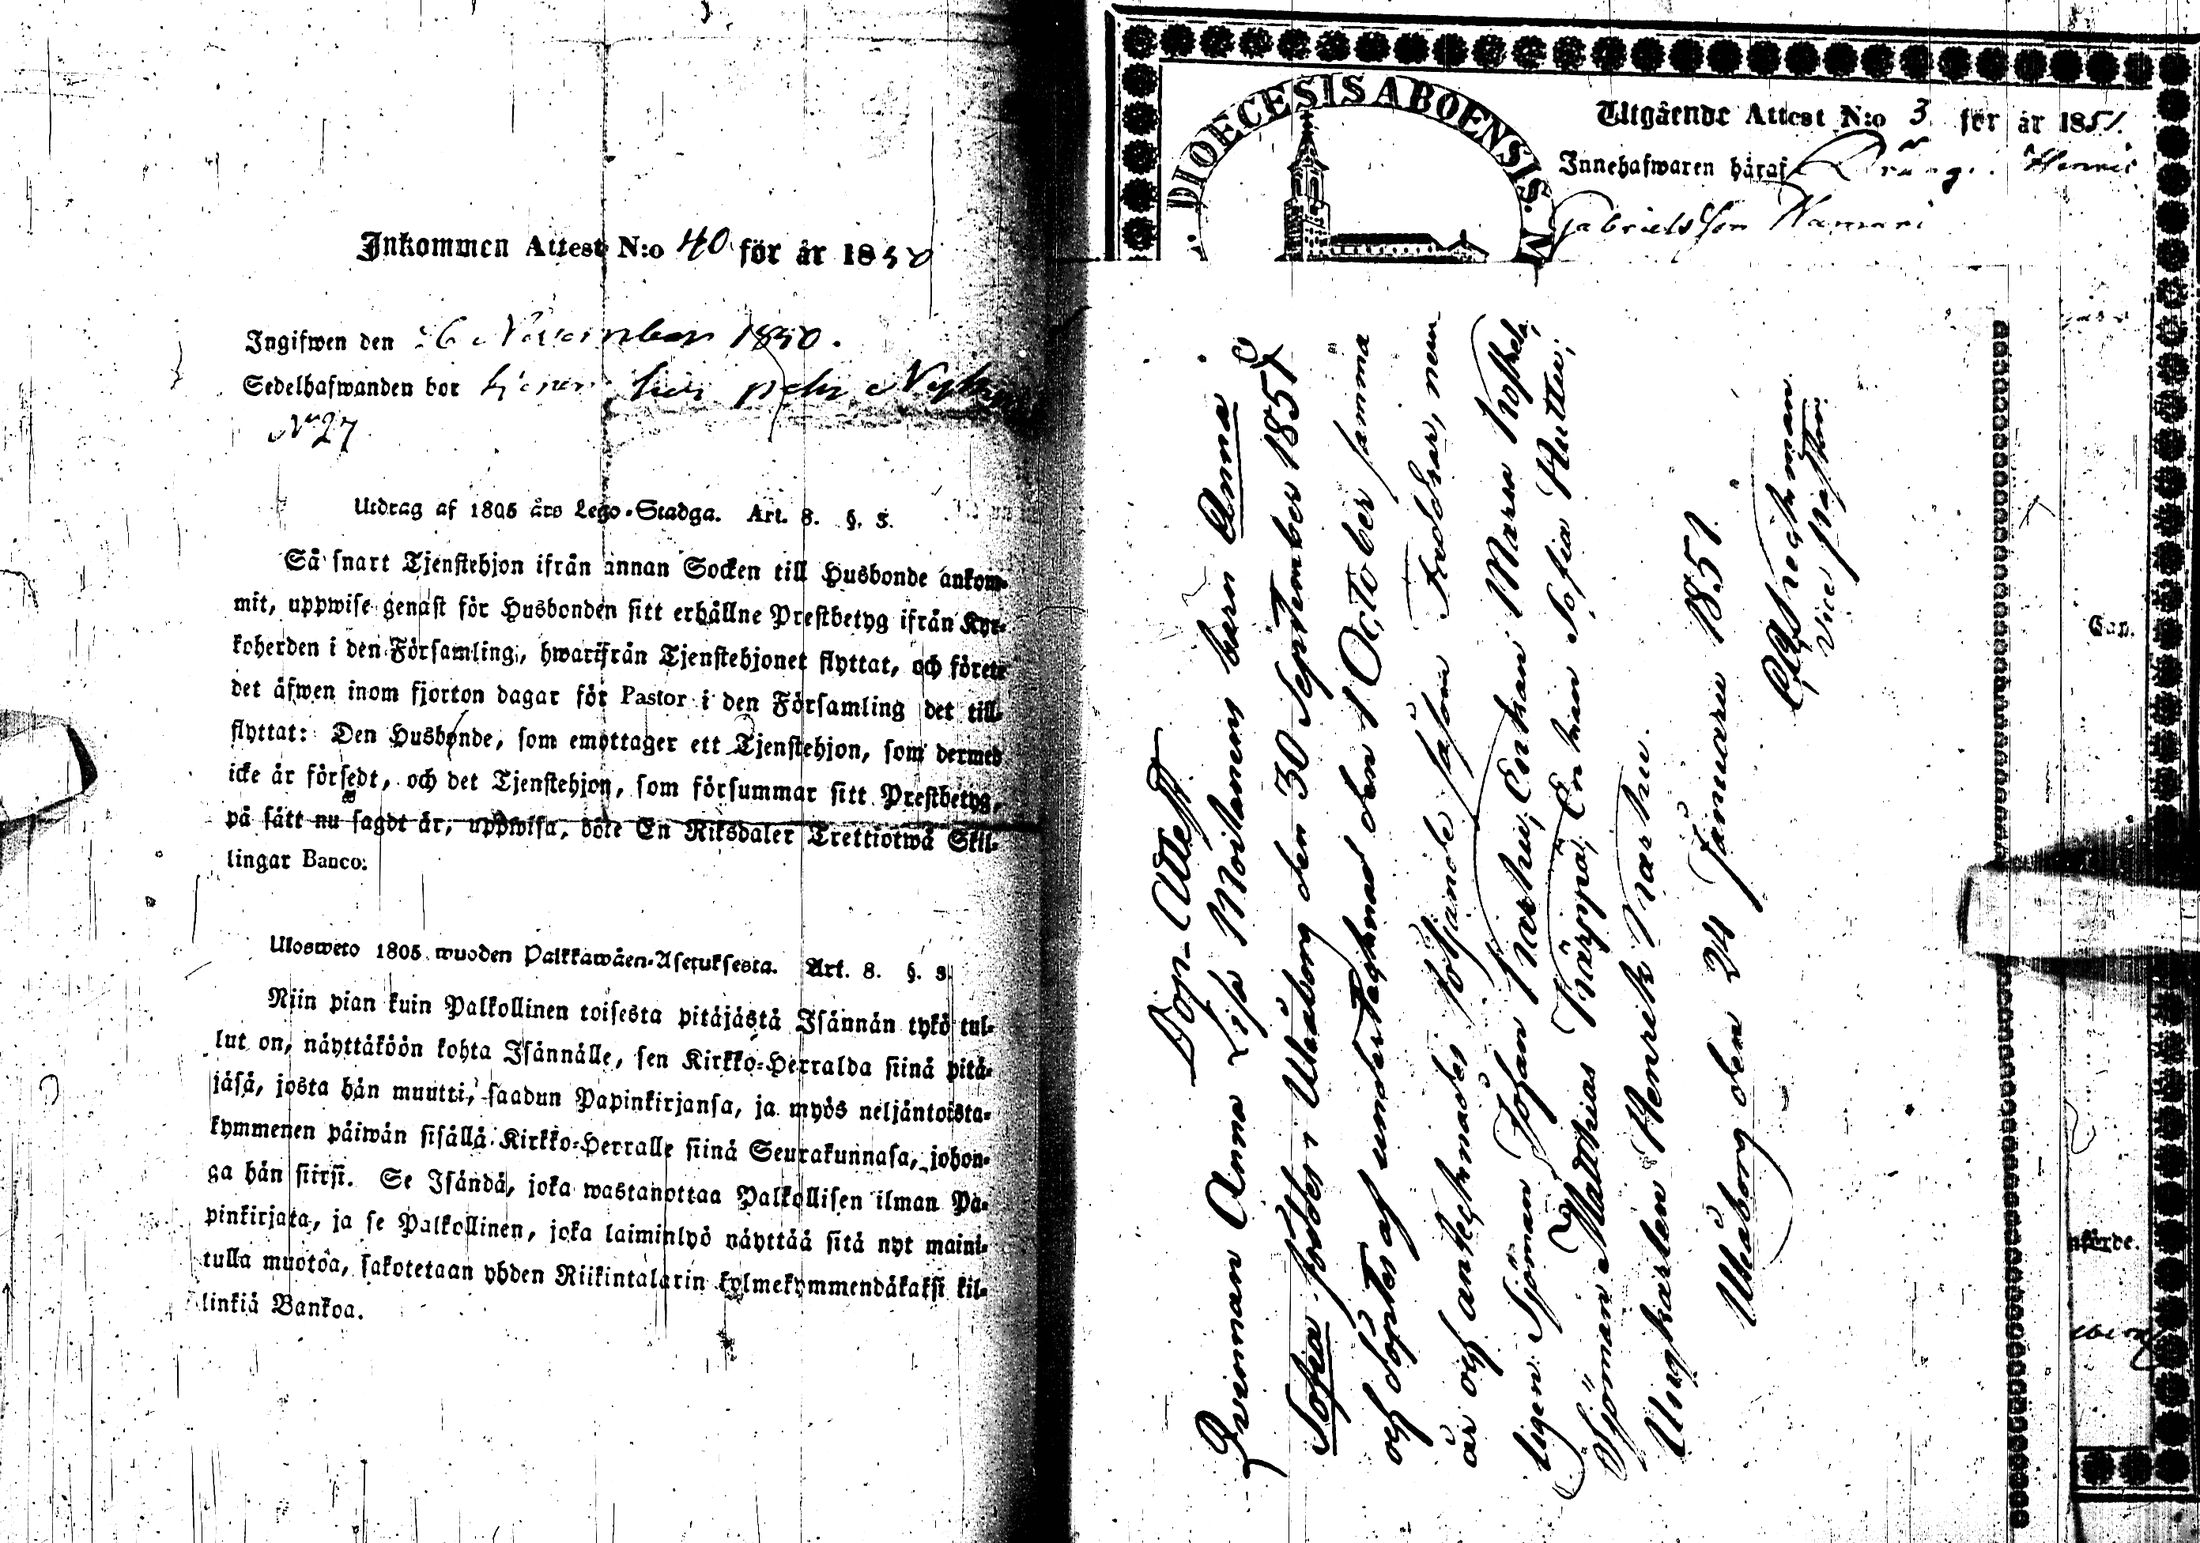 Inkommen Attest N:o 40 för år 1850
Ingifwen den 26 November 1850.
Sedelhafwanden bor tjener hos Pehr
N:o 27
Utdrag af 1805 års Lego-Stadga. Art. 8. §. 3.
Så snart Tjenstehjon ifrån annan Socken till Husbonde ankom-
mit, uppwise genast för Husbonden sitt erhållne Prestbetyg ifrån Kyr-
koherden i den Församling, hwarifrån Tjenstehjonet flyttat, och förete
det äfwen inom fjorton dagar för Pastor i den Församling det till-
flyttat: Den Husbonde, som emottager ett Tjenstehjon, som dermed
icke är försedt, och det Tjenstehjon, som försummar sitt Prestbetyg,
på sätt nu sagdt är, uppwisa, böte En Riksdaler Trettiotwå Skil-
lingar Banco.
Ulosweto 1805 wuoden Palkkawäen-Asetuksesta. Art. 8. §. 3
Niin pian kuin Palkollinen toisesta pitäjästä Isännän tykö tul-
lut on, näyttäköön kohta Isännälle, sen Kirkko-Herralda siinä pitä-
jäsä, josta hän muutti, saadun Papinkirjansa, ja myös neljäntoista-
kymmenen päiwän sisällä Kirkko-Herralle siinä Seurakunnasa, johon-
ga hän siirsi. Se Isändä, joka wastanottaa Palkollisen ilman Pa-
pinkirjata, ja se Palkollinen, joka laiminlyö näyttää sitä nyt maini-
tulla muotoa, sakotetaan yhden Riikintalarin kolmekymmendäkaksi kil-
linkiä Bankoa.
DIOECESIS ABOENSIS
Utgående Attest N:o 3 för år 1851.
Innehafwaren häraf Drängen Henric
Gabrielsson Wamari
Dop-Attest.
Qvinnan Anna Lisa Moilanens barn Anna
Sofia föddes i Uleåborg den 30 September 1851
och döptes af undertecknad den 1 October samma
år och antecknades följande såsom Faddrar, nem-
ligen Sjöman Johan Karhu, Enkan Maria
Sjöman Matthias Käppä, Enkan Sofia Huttu,
Ungkarlen Henrik Karhu.
Uleåborg den 24 Januari 1851.
Vice Pastor.
Cap.